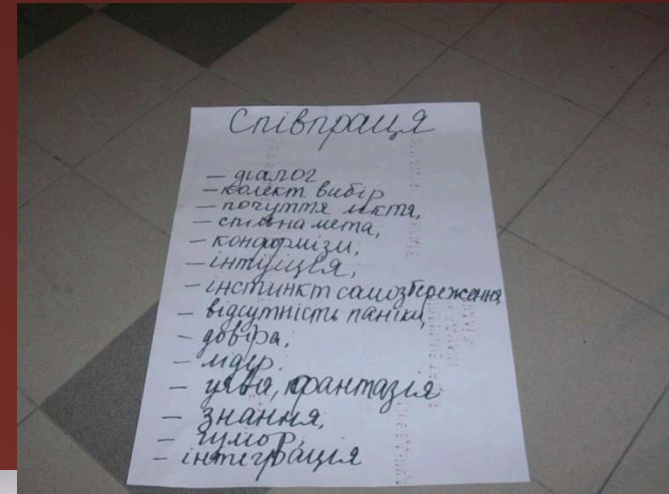 Співпраця
– діалог
– колект вибір
– почуття ліктя,
– спільна мета,
– конформізм,
– інтуїція,
– інстинкт самозбереження
– відсутність паніки,
– довіра,
– лідер.
– уява, фантазія
– знання,
– гумор,
– інтеграція